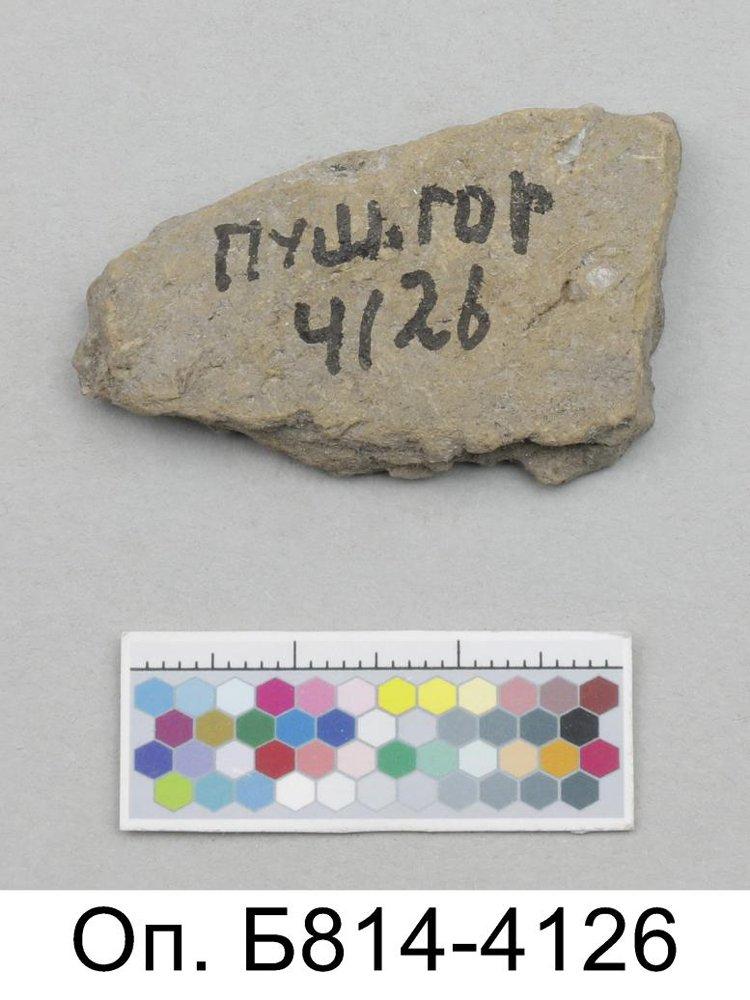 ПУШ.ГОР
4126
Оп. Б814-4126